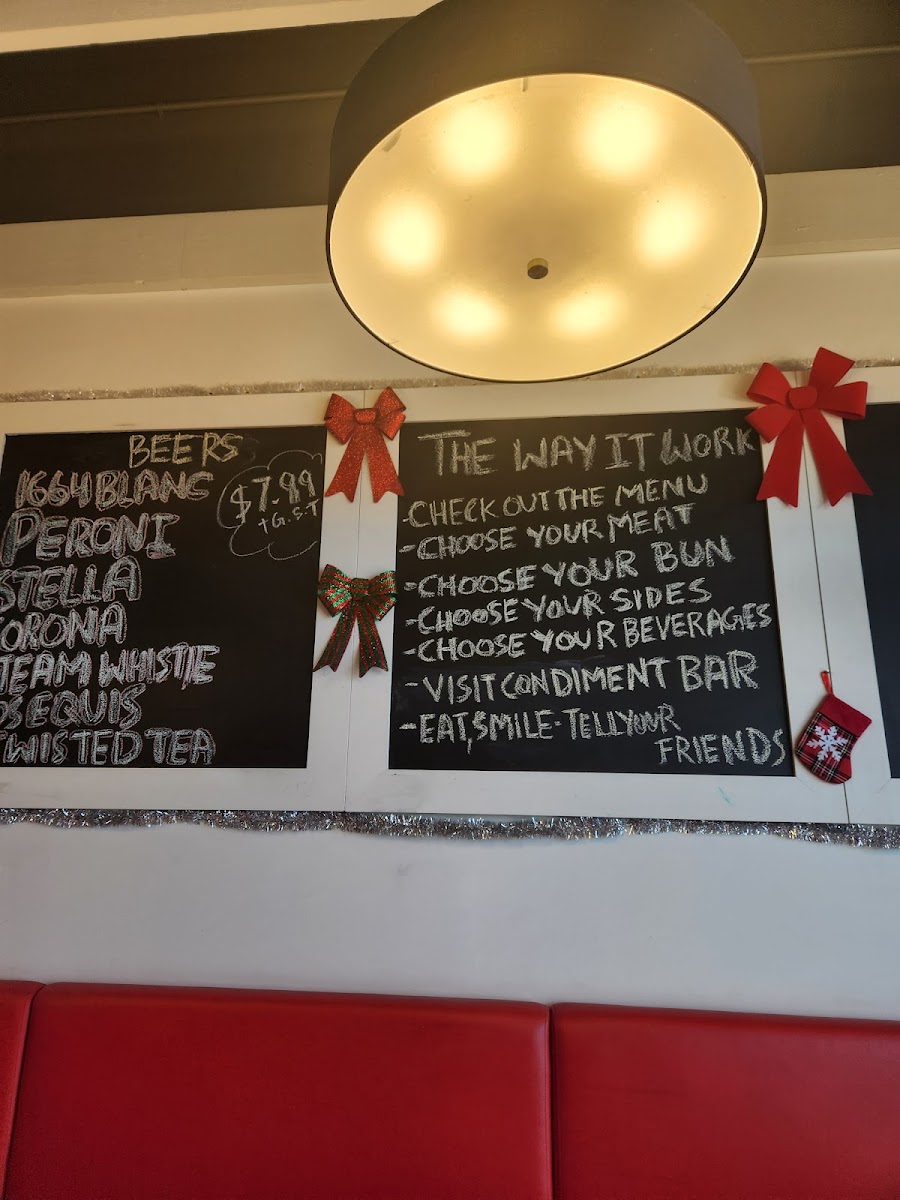 BEERS
1664 BLANC
$7.99
+ G.S.T
PERONI
STELLA
CORONA
TEAM WHISTLE
OS EQUIS
TWISTED TEA
THE WAY IT WORK
-CHECK OUT THE MENU
-CHOOSE YOUR MEAT
-CHOOSE YOUR BUN
-CHOOSE YOUR SIDES
-CHOOSE YOUR BEVERAGES
-VISIT CONDIMENT BAR
-EAT, SMILE-TELL YOUR
FRIENDS